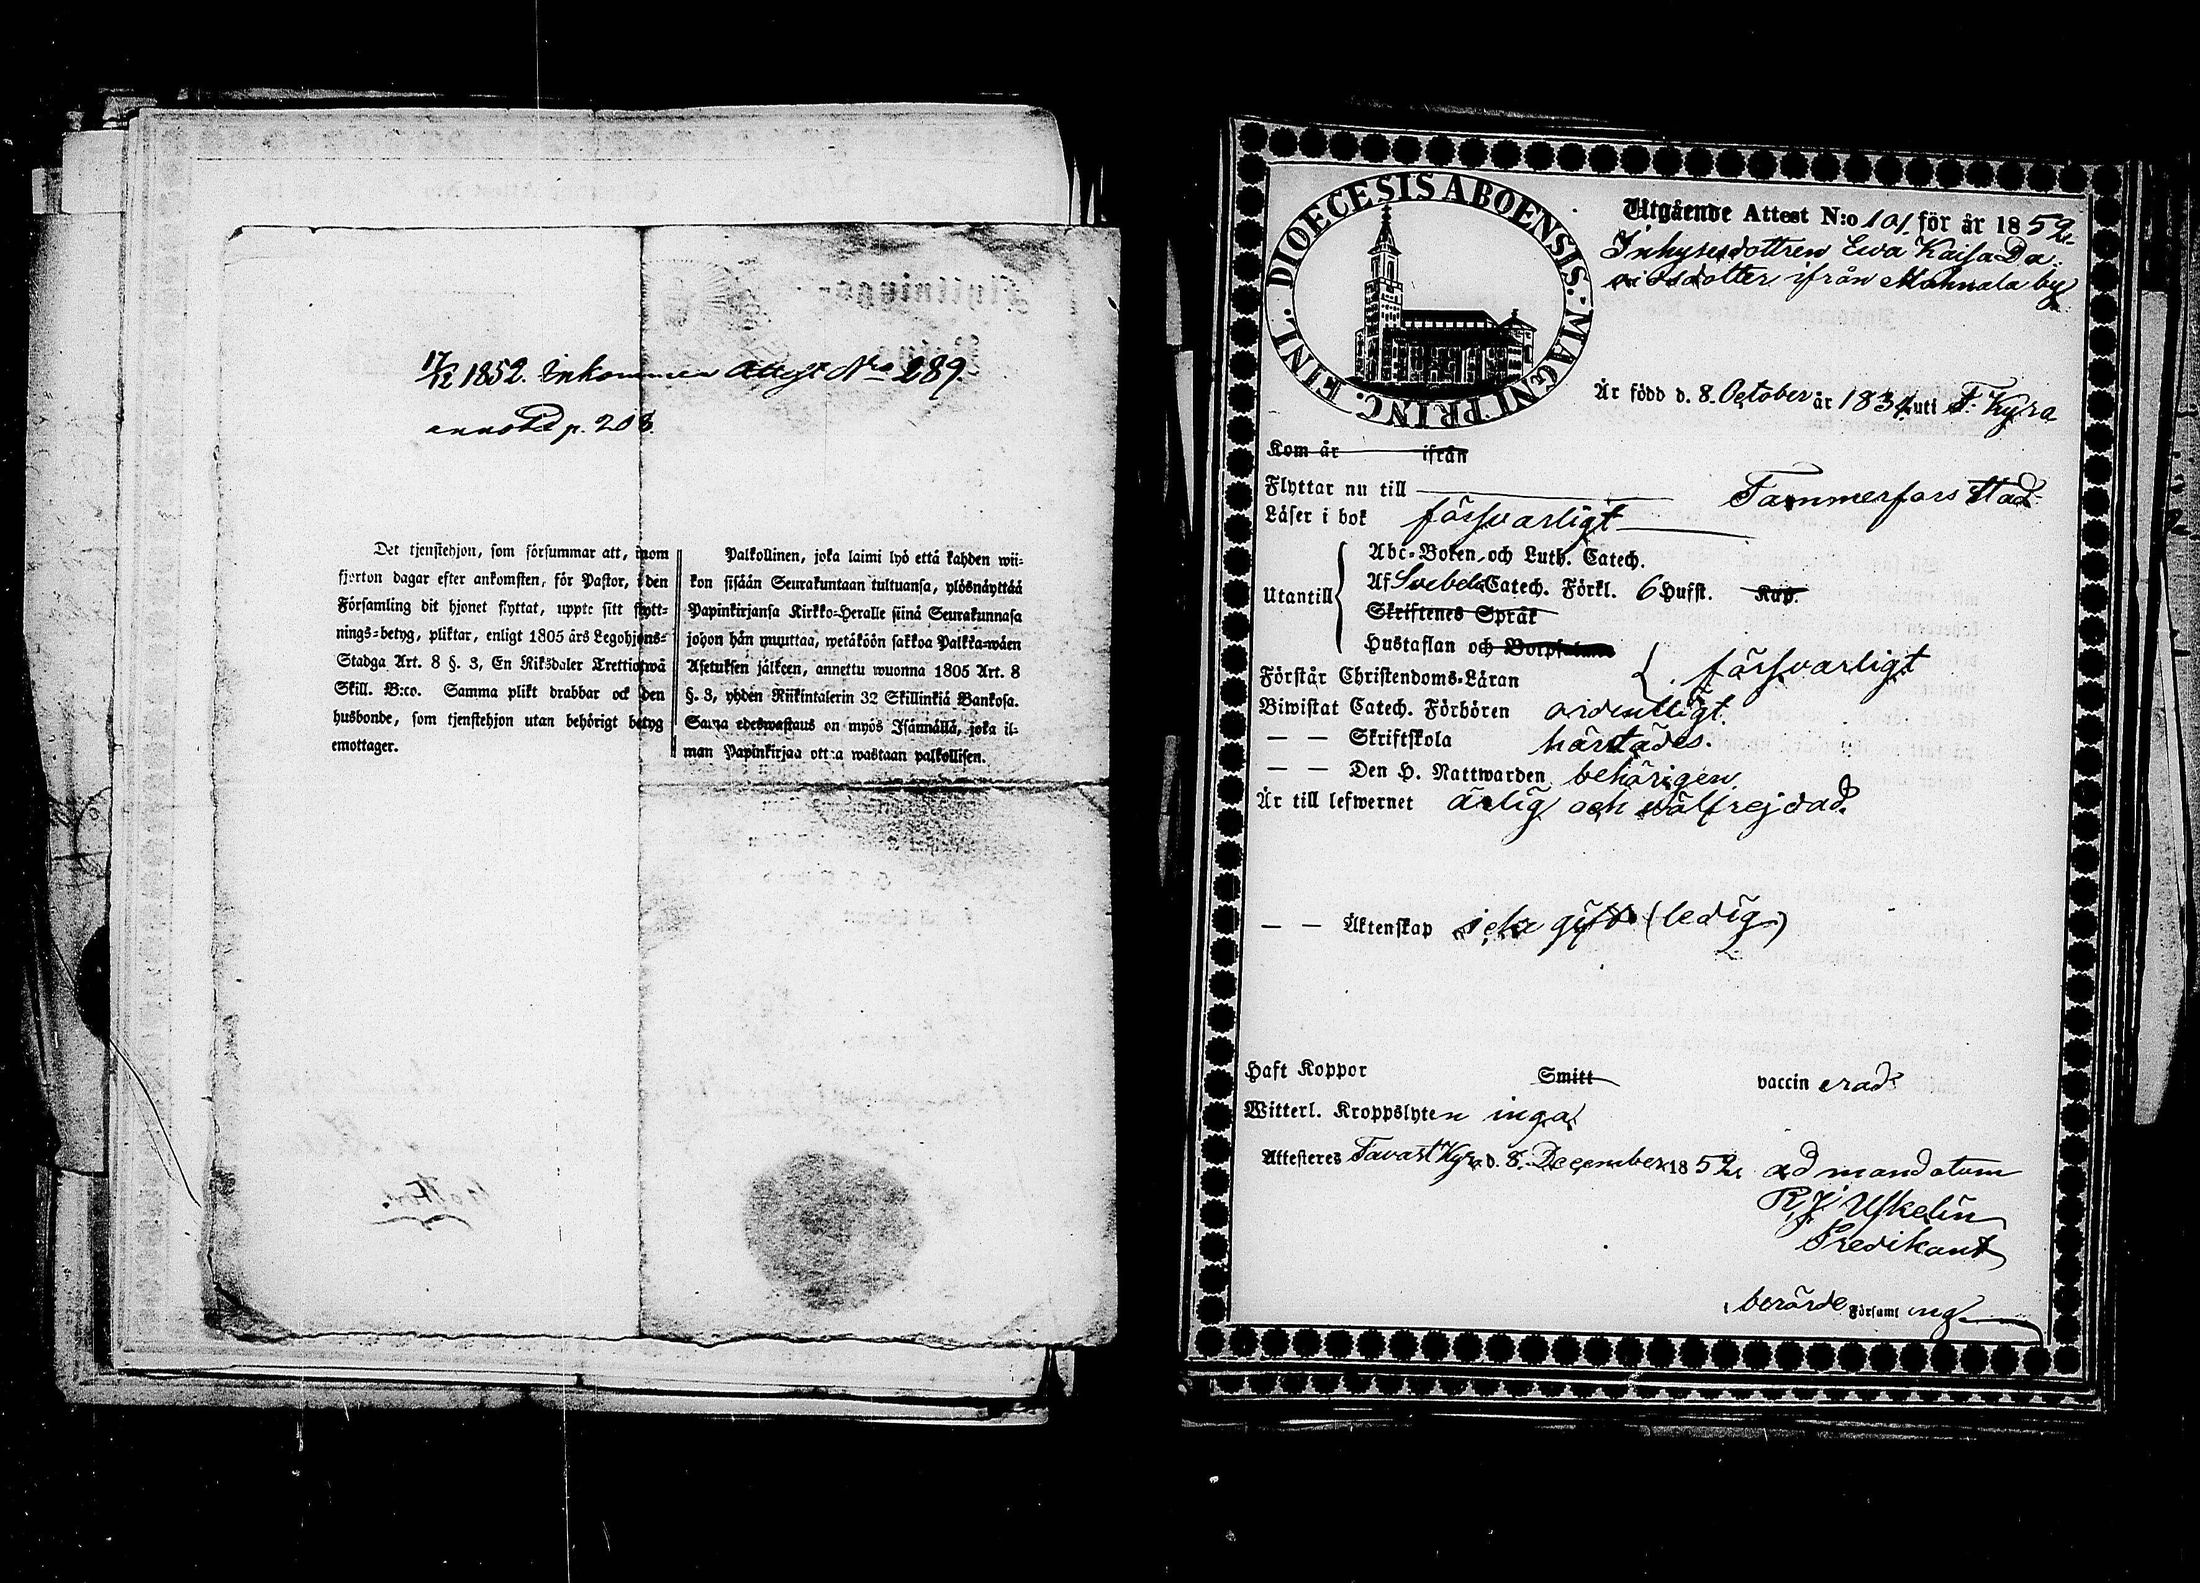 17/12 1852. Inkommen Attest Nro 289.
annoterad p. 208.
Det tjenstehjon, som försummar att, inom
fjorton dagar efter ankomsten, för Pastor, i den
Församling dit hjonet flyttat, uppte sitt flytt-
nings-betyg, pliktar, enligt 1805 års Legohjons-
Stadga Art. 8 §. 3, En Riksdaler Trettiotwå
Skill. B:co. Samma plikt drabbar ock den
husbonde, som tjenstehjon utan behörigt betyg
emottager.
Palkollinen, joka laimi lyö että kahden wii-
kon sisään Seurakuntaan tultuansa, ylösnäyttää
Papinkirjansa Kirkko-Heralle siinä Seurakunnasa
johon hän muuttaa, wetäköön sakkoa Palkka-wäen
Asetuksen jälkeen, annettu wuonna 1805 Art. 8
§. 3, yhden Riikintalerin 32 Skillinkiä Bankosa.
Sama edeswastaus on myös Isännällä, joka il-
man Papinkirjaa ottaa wastaan palkollisen.
DIOECESIS ABOENSIS. MAGNI PRINC. FINL.
Utgående Attest N:o 101. för år 1852.
Inhysesdottren Ewa Kaisa Da-
vidsdotter ifrån Mahnala by
Är född d. 8. October år 1834 uti T. Kyro
Kom år ifrån
Flyttar nu till Tammerfors stad.
Läser i bok försvarligt
Utantill
Abc-Boken, och Luth. Catech.
Af Svebel. Catech. Förkl. 6 Hufst. Kap.
Skriftenes Språk
Hustaflan och Botpsalmer
Förstår Christendoms-Läran försvarligt
Biwistat Catech. Förhören ordentligt.
— — Skriftskola härstädes.
— — Den H. Nattwarden behörigen
Är till lefwernet ärlig och wälfrejdad.
— — Äktenskap icke gift (ledig)
Haft Koppor Smitt vaccinerad.
Witterl. Kroppslyten inga.
Attesteres Tavast Kyro d. 8. December 1852. ad mandatum
R. J. Uskelin
Predikant
i berörde Församling